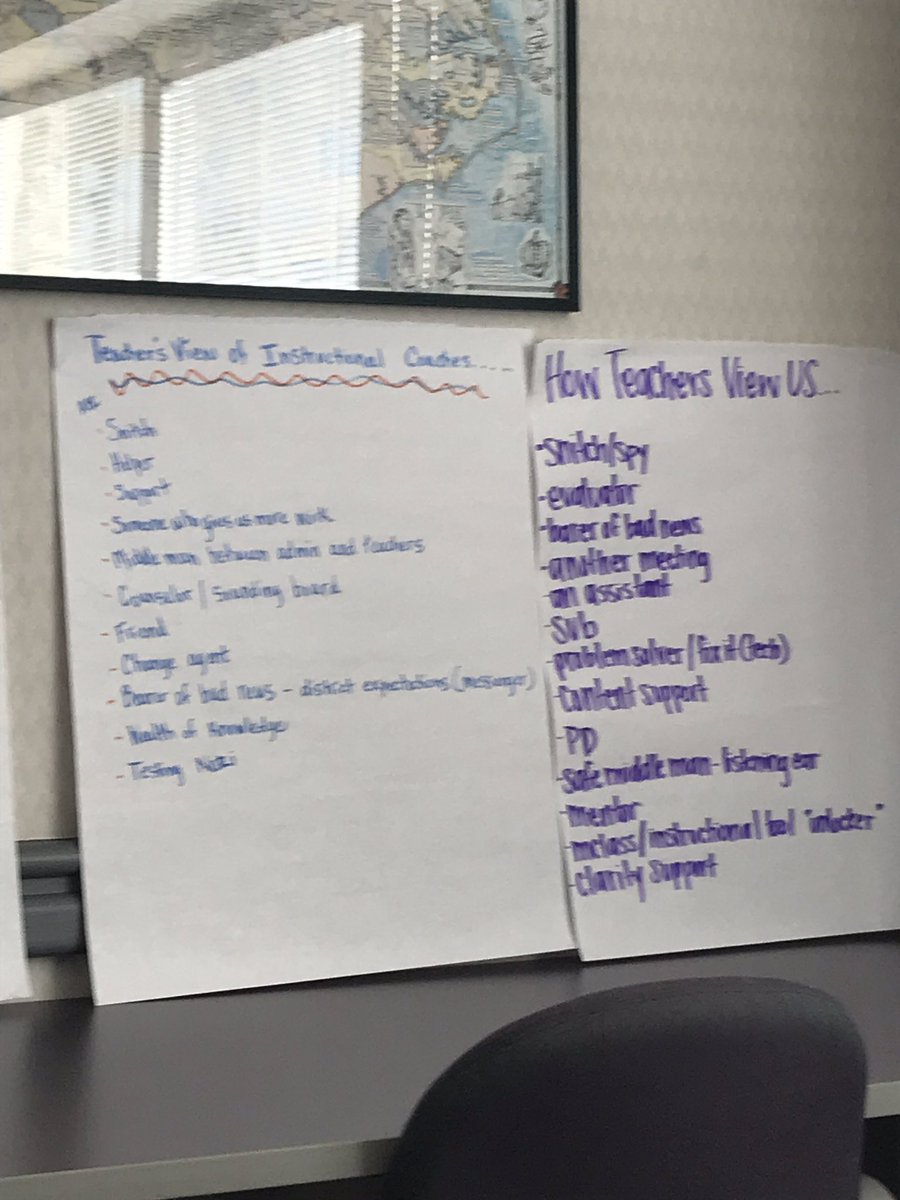 Teacher's View of Instructional Coaches....
- Snitch
- Helper
- Support
- Someone who gives us more work
- Middle man between admin and teachers
- Counselor / Sounding board
- Friend
- Change agent
- Bearer of bad news - district expectations (messenger)
- Wealth of Knowledge
- Testing
How Teachers View US...
- Snitch/spy
- evaluator
- barer of bad news
- another meeting
- an assistant
- Sub
- problem solver / fix it (Tech)
- Content support
- PD
- safe middle man - listening ear
- mentor
- mclass/instructional tool "unlocker"
- clarity support